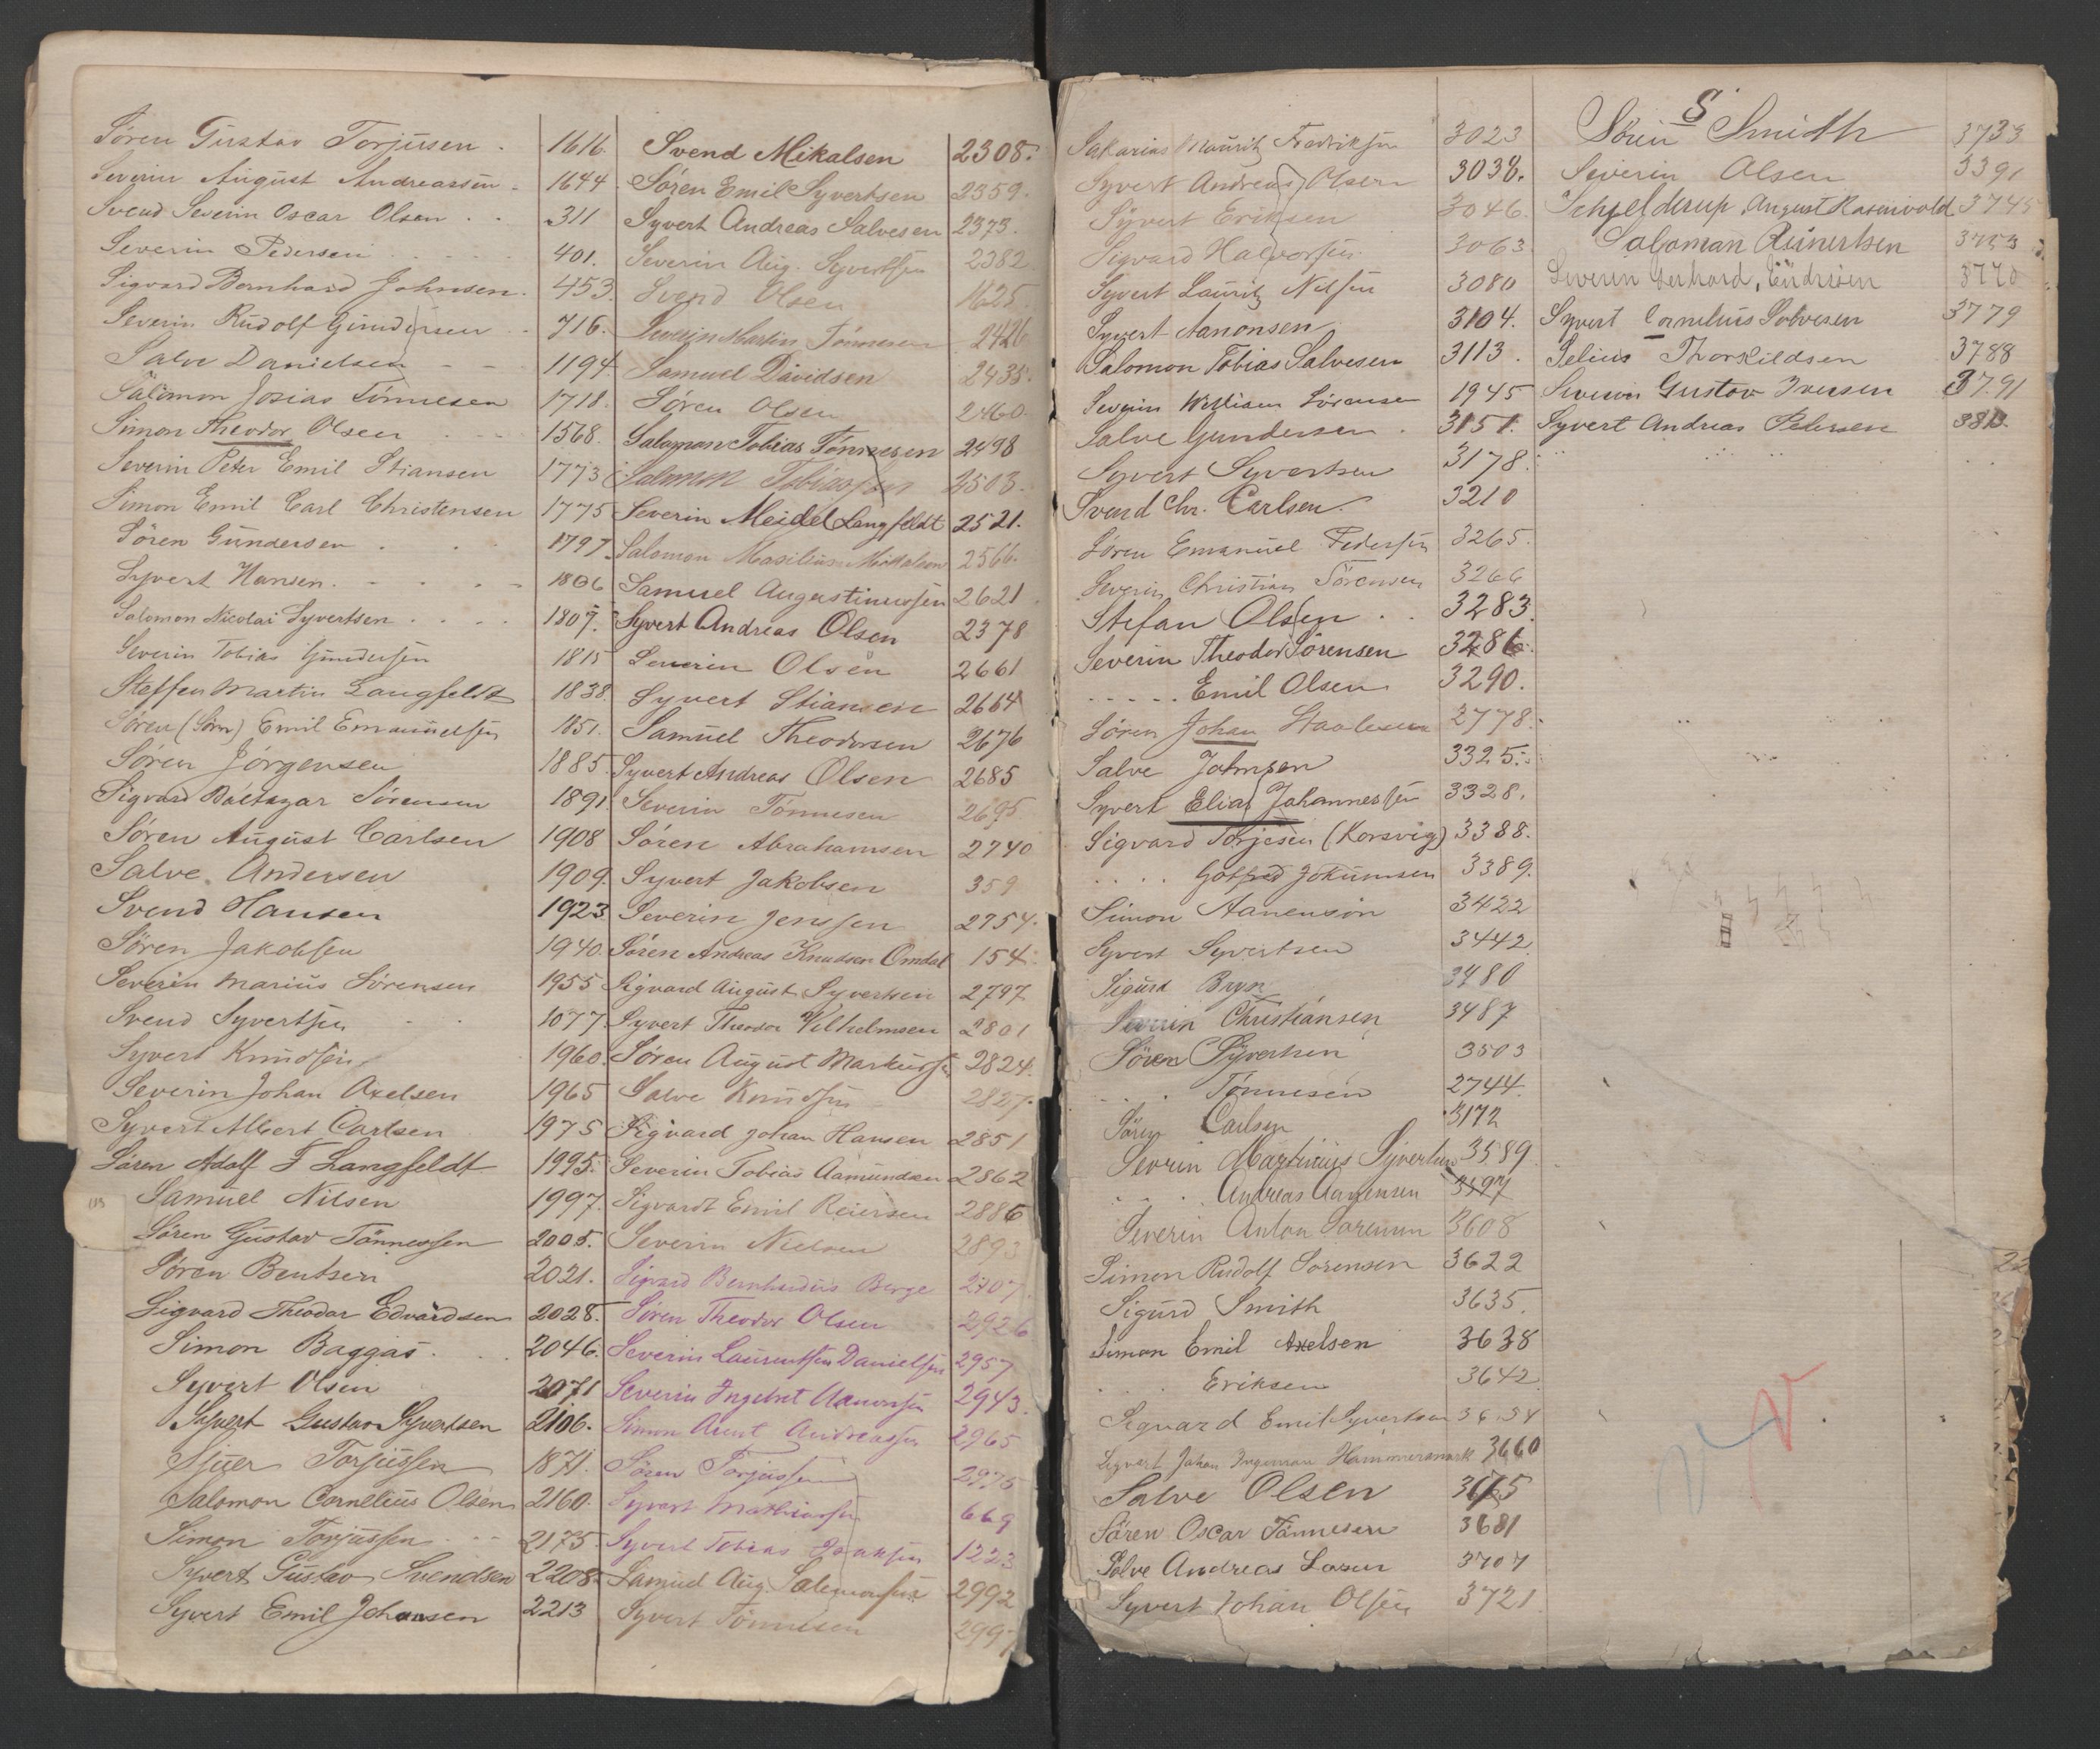 Søren Gustav Torjusen . 1616.
Severin August Andreassen . 1644
Svend Severin Oscar Olsen . . 311
Severin Pedersen . . . . 401.
Sigvard Bernhard Johnsen . 453.
Severin Rudolf Gundersen . . 716.
Salve Danielsen - - 1194
Salomon Josias Tönnesen 1718.
Simon Theodor Olsen . - - 1568.
Severin Peter Emil Stiansen 1773
Simon Emil Carl Christensen 1775
Sören Gundersen . . . 1797.
Syvert Hansen. - . . - 1806
Salomon Nicolai Syvertsen . . . . 1807.
Severin Tobias Gundersen 1815
Steffen Martin Langfeldt 1838.
Søren (Sörn) Emil Emanuelsen 1851.
Søren Jörgensen 1885.
Sigvard Baltazar Sörensen 1891
Sören August Carlsen 1908
Salve Andersen 1909.
Svend Hansen 1923
Sören Jakobsen 1940.
Severin Marius Sörensen 1955
Svend Syvertsen . . 1077
Syvert Knudsen 1960.
Severin Johan Axelsen 1965
Syvert Albert Carlsen 1975
Søren Adolf F Langfeldt 1995.
Samuel Nilsen 1997.
Søren Gustav Tönnessen 2005.
Søren Bentsen 2021.
Sigvard Theodor Edvardsen 2028.
Simon Baggas . . . 2046.
Syvert Olsen 2071
Syvert Gustav Syvertsen 2106.
Sjuer Torjussen 1871.
Salomon Cornelius Olsen 2160.
Simon Torjussen - - - 2175.
Syvert Gustav Svendsen 2208.
Syvert Emil Johansen 2213
Svend Mikalsen 2308.
Søren Emil Syvertsen 2359.
Syvert Andreas Salvesen 2373.
Severin Aug. Syvertsen 2382
Svend Olsen 1625.
Severin Martin Tönnesen 2426
Samuel Davidsen 2435.
Søren Olsen 2460.
Salomon Tobias Tönnesen 2498
Salomon Tobiassen 2503.
Severin Meidel Langfeldt 2521.
Salomon Mikalsen 2566.
Samuel Augustinussen 2621.
Syvert Andreas Olsen 2378
Severin Olsen 2661
Syvert Stiansen 2664
Samuel Theodorsen 2676
Syvert Andreas Olsen 2685
Severin Tönnesen 2695.
Søren Abrahamsen 2740
Syvert Jakobsen 359
Severin Jenssen 2754.
Søren Andreas Knudsen Omdal 154.
Sigvard August Syvertsen 2797
Syvert Theodor Vilhelmsen 2801
Søren August Markussen 2824.
Salve Knudsen 2827.
Sigvard Johan Hansen 2851
Severin Tobias Aamundsen 2862
Sigvardt Emil Reiersen 2886
Severin Nielsen 2893
Sigvard Bernhardus Berge 2707
Søren Theodor Olsen 2926
Severin Laurentsen Danielsen 2957
Severin Ingebret Aanonsen 2943.
Simon Arent Andreassen 2965
Søren Torjussen 2975
Syvert Mathiassen 669
Syvert Tobias Isaksen 1223
Samuel Aug. Salomonsen 2992
Syvert Tönnesen 299
Sakarias Mauritz Fredriksen 3023
Syvert Andreas Olsen 3038.
Syvert Eriksen 3046.
Sigvard Halvorsen 3063
Syvert Lauritz Nilsen 3080
Syvert Aanonsen 3104.
Salomon Tobias Salvesen 3113.
Severin William Sörensen 1945
Salve Gundersen . 3151.
Syvert Syvertsen 3178.
Svend Chr. Carlsen. 3210
Søren Emanuel Pedersen 3265.
Severin Christian Sörensen 3266
Stefan Olsen . . 3283.
Severin Theodor Sörensen 3286.
. . . . . Emil Olsen 3290.
Sören Johan Staalesen 2778.
Salve Johnsen 3325.
Syvert Elias Johannessen 3328.
Sigvard Torjesen (Korsvig) 3388.
. . . . Gotfred Jokumsen 3389.
Simon Aanenson 3422
Syvert Syvertsen 3442.
Sigurd Bryn 3480
Severin Christiansen 3487
Søren Syvertsen 3503
. . . Tönnesen 2744.
Sören Carlsen 3172
Sevrin Martinius Syvertsen 3589.
. . . Andreas Aanensen 3597
Severin Anton Sörensen 3608
Simon Rudolf Sorensen 3622
Sigurd Smith 3635.
Simon Emil Axelsen 3638
. . . . Eriksen 3642.
Sigvard Emil Syvertsen 3634
Sigvert Johan Ingeman Hammersmark 3660
Salve Olsen 3665
Sören Oscar Tönnesen 3681
Salve Andreas Larsen 3707
Syvert Johan Olsen 3721
S
Søren Smith 3733
Severin Olsen 3391
Schjelderup, August Rosenvold 3745
Saloman Reinertsen 3753
Severin Gerhard, Endresen 3770
Syvert Cornelius Solvesen 3779
Selius Thorkildsen 3788
Severin Gustav Iversen 3791
Syvert Andreas Petersen 3813.